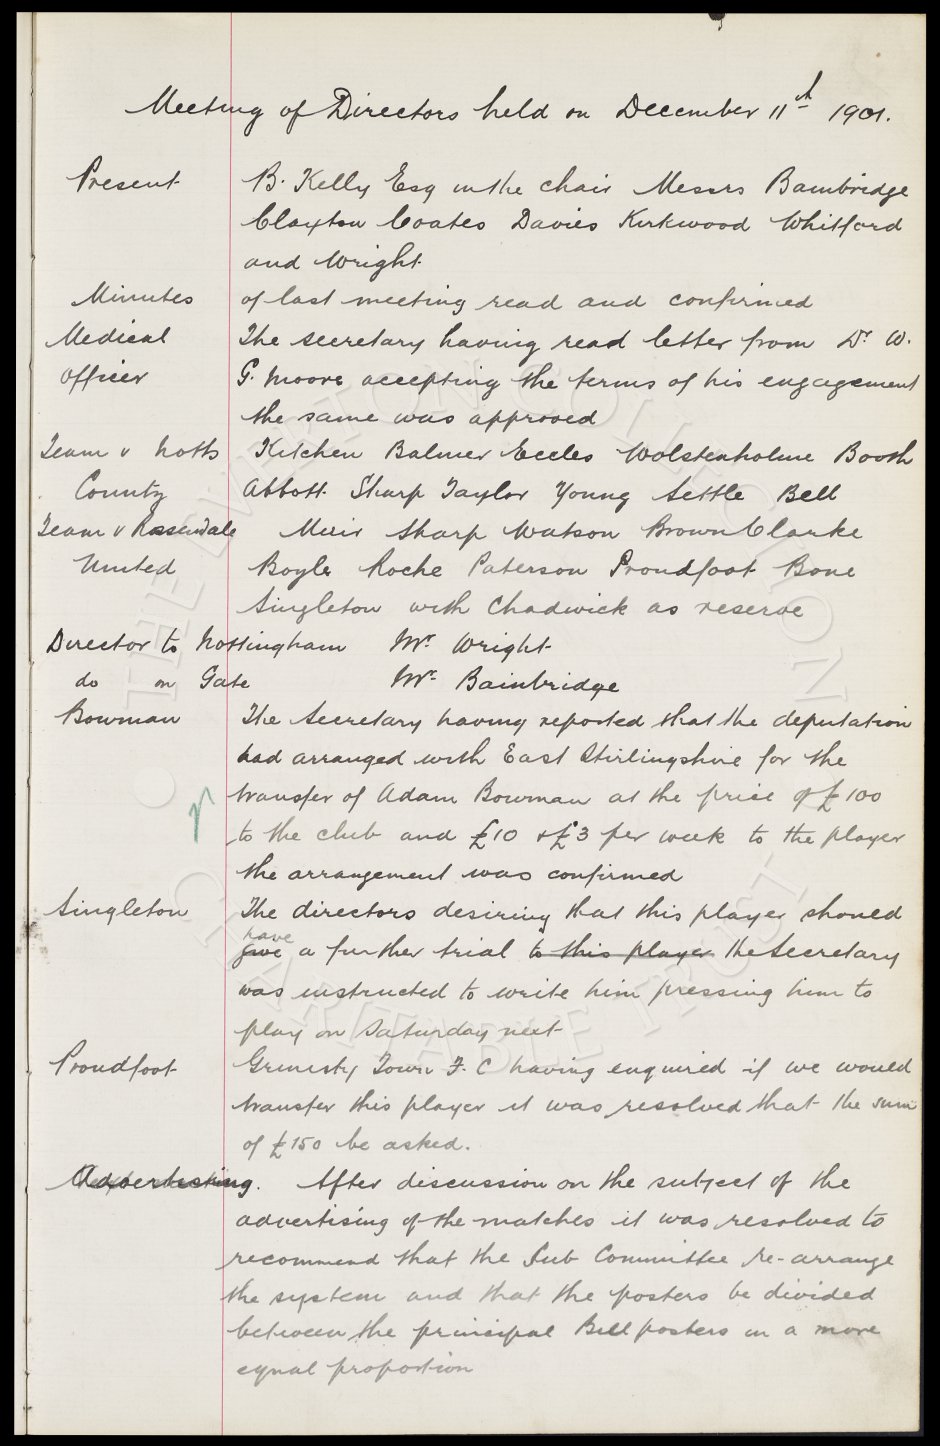 Meeting of Directors held on December 11th 1901.
Present B. Kelly Esq in the chair Messrs Bainbridge
Clayton Coates Davies Kirkwood Whitford
and Wright
Minutes of last meeting read and confirmed
Medical The secretary having read letter from Dr W.
Officer G. Moore accepting the terms of his engagement
the same was approved
Team v Notts Kitchen Balmer Eccles Wolstenholme Booth
County Abbott Sharp Taylor Young Settle Bell
Team v Rossendale Muir Sharp Watson Brown Clarke
United Boyle Roche Paterson Proudfoot Bone
Singleton with Chadwick as reserve
Director to Nottingham Mr Wright
do on Gate Mr Bainbridge
Bowman The Secretary having reported that the deputation
had arranged with East Stirlingshire for the
transfer of Adam Bowman at the price of £100
to the club and £10 & £3 per week to the player
the arrangement was confirmed
Singleton The directors desiring that this player should
have
give a further trial to this player the Secretary
was instructed to write him pressing him to
play on Saturday next
Proudfoot Grimsby Town F. C having enquired if we would
transfer this player it was resolved that the sum
of £150 be asked.
Advertising. After discussion on the subject of the
advertising of the matches it was resolved to
recommend that the Sub Committee re-arrange
the system and that the posters be divided
between the principal Bill posters in a more
equal proportion